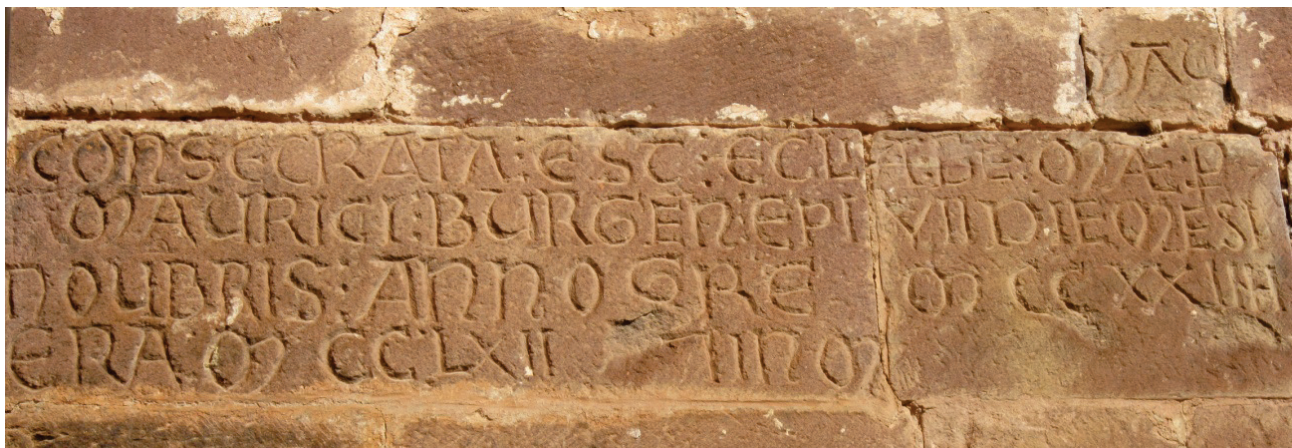 CONSECRATA : EST : ECLA : BE : MAE : P
MAURICI : BURGEN : EPI VII DIE MESI
NOUBRIS : ANNO GRE M CCXXIIII
ERA M CCLXII